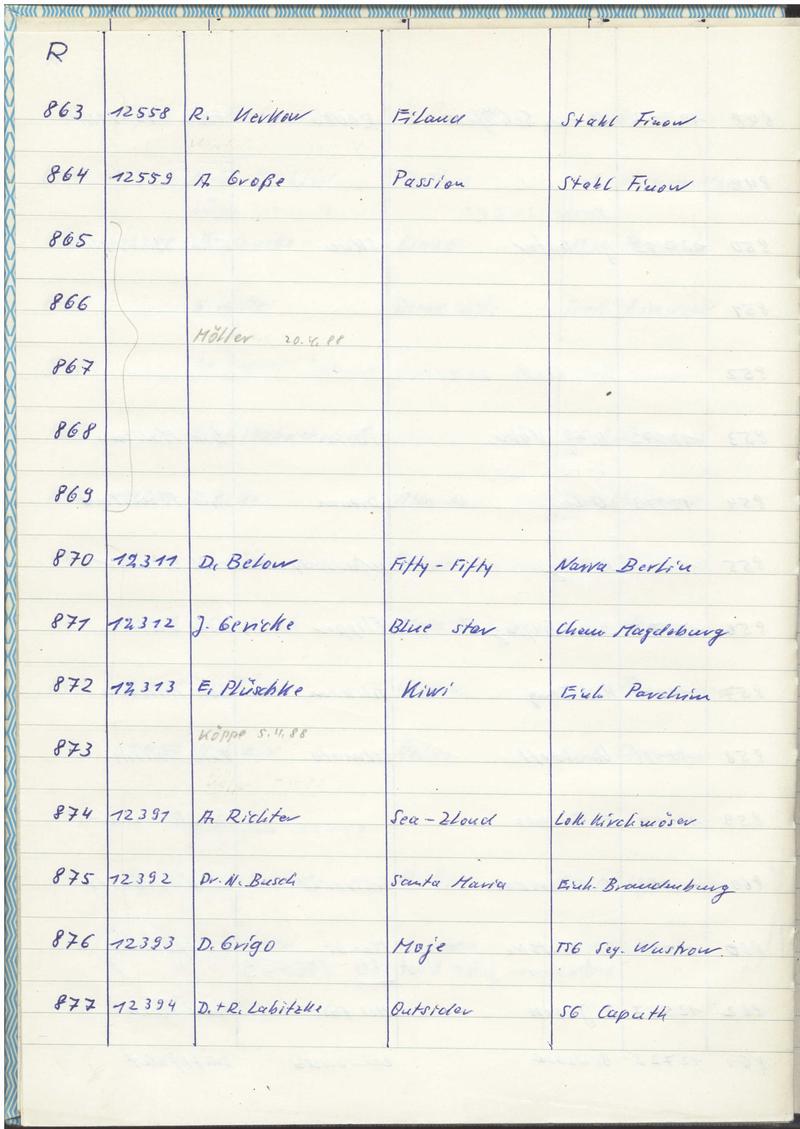 R
863 12558 R. Kerkow Eiland Stahl Finow
864 12559 A. Große Passion Stahl Finow
865
866
Möller 20.4.88
867
868
869
870 12311 D. Below Fifty-Fifty Narva Berlin
871 12312 J. Gericke Blue star Chem Magdeburg
872 12313 E. Plüschke Kiwi Einh Parchim
Köppe 5.4.88
873
874 12391 A. Richter Sea-Zloud Lok. Kirchmöser
875 12392 Dr. N. Busch Santa Maria Einh. Brandenburg
876 12393 D. Grigo Moje TSG Seg. Wustrow
877 12394 D. + R. Labitzke Outsider SG Caputh